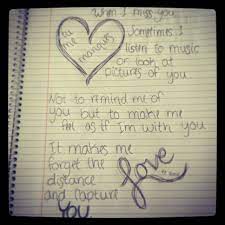 When I miss you
tu me manques
Sometimes I
listen to music
or look at
pictures of you
Not to remind me of
you but to make me
feel as if I'm with you
It makes me
forget the
distance
and capture
Love
You